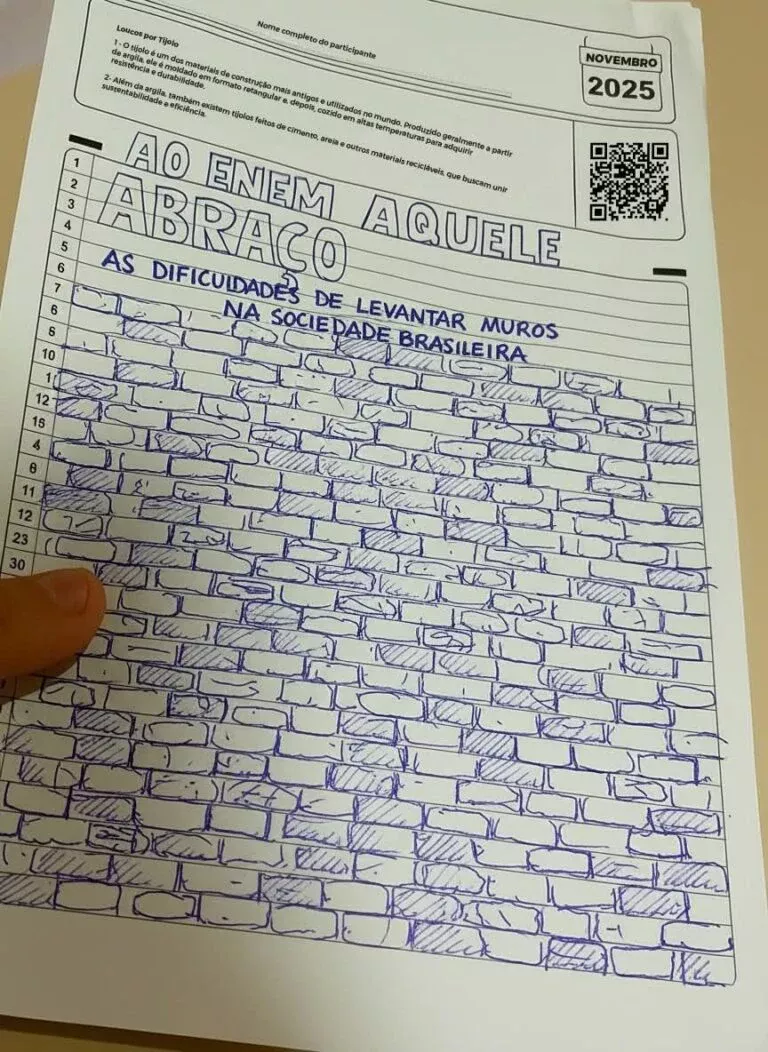 Nome completo do participante
Loucos por Tijolo
1 - O tijolo é um dos materiais de construção mais antigos e utilizados no mundo. Produzido geralmente a partir
da argila, ele é moldado em formato retangular e, depois, cozido em altas temperaturas para adquirir
resistência e durabilidade.
2- Além da argila, também existem tijolos feitos de cimento, areia e outros materiais recicláveis, que buscam unir
sustentabilidade e eficiência.
NOVEMBRO
2025
AO ENEM AQUELE
ABRAÇO
AS DIFICULDADES DE LEVANTAR MUROS
NA SOCIEDADE BRASILEIRA
1
2
3
4
5
6
7
6
8
10
11
12
15
4
8
11
12
23
30